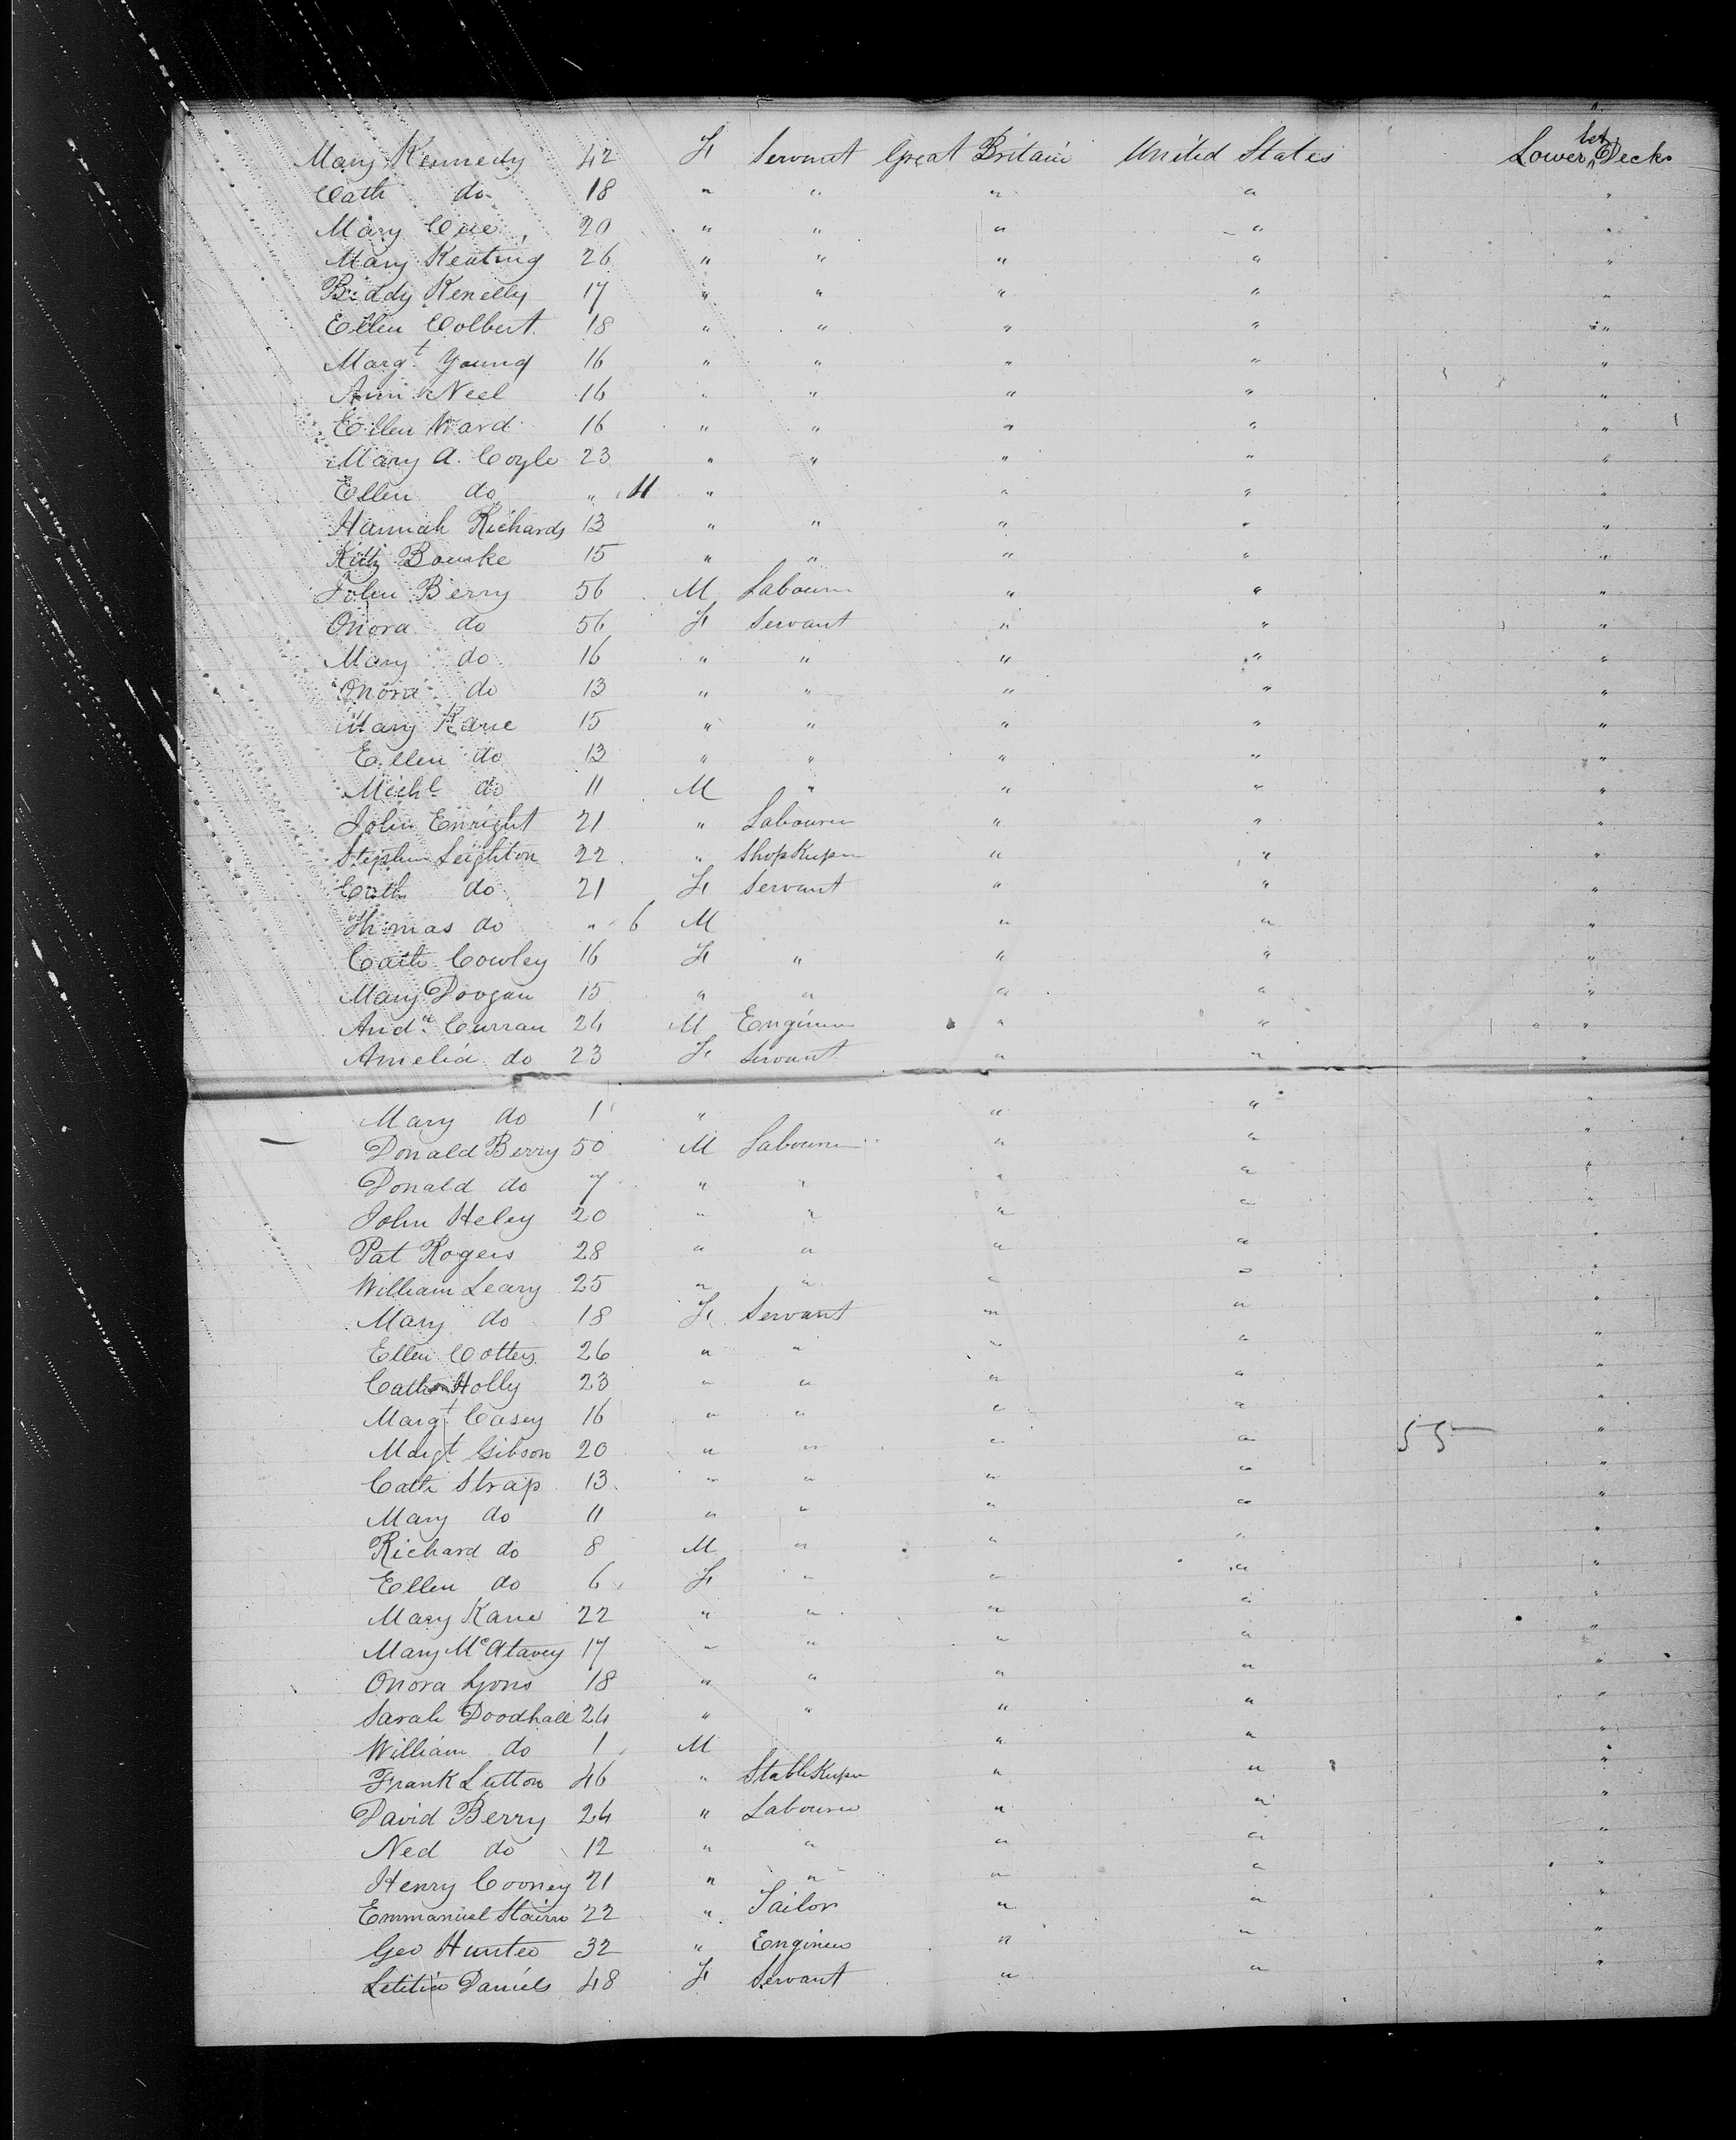 Mary Kennedy 42 F Servant Great Britain United States Lower bet Decks
Cath do 18 " " " " "
Mary Cue 20 " " " " "
Mary Keating 26 " " " " "
Biddy Kenelly 17 " " " " "
Ellen Colbert 18 " " " " "
Margt Young 16 " " " " "
Ann Neel 16 " " " " "
Ellen Ward 16 " " " " "
Mary A. Coyle 23 " " " " "
Ellen do " 11 " " " "
Hannah Richards 13 " " " " "
Kitty Bourke 15 " " " " "
John Berry 56 M Labourer " " "
Onora do 56 F Servant " " "
Mary do 16 " " " " "
Onora do 13 " " " " "
Mary Kane 15 " " " " "
Ellen do 13 " " " " "
Michl do 11 M " " " "
John Enright 21 " Labourer " " "
Stephen Leighton 22 " Shopkeeper " " "
Cath do 21 F Servant " " "
Thomas do " 6 M " " "
Cath Cowley 16 F " " " "
Mary Doogan 15 " " " " "
Andw Curran 24 M Engineer " " "
Amelia do 23 F Servant " " "
Mary do 1 " " " "
Donald Berry 50 M Labourer " " "
Donald do 7 " " " " "
John Heley 20 " " " " "
Pat Rogers 28 " " " " "
William Leary 25 " " " " "
Mary do 18 F Servant " " "
Ellen Cotters 26 " " " " "
Cath Holly 23 " " " " "
Margt Casey 16 " " " " "
Margt Gibson 20 " " " " 55 "
Cath Strap 13 " " " " "
Mary do 11 " " " " "
Richard do 8 M " " " "
Ellen do 6 F " " " "
Mary Kane 22 " " " " "
Mary McAtavey 17 " " " " "
Onora Lyons 18 " " " " "
Sarah Doodhall 24 " " " " "
William do 1 M " " "
Frank Lutton 46 " Stablekeeper " " "
David Berry 24 " Labourer " " "
Ned do 12 " " " " "
Henry Cooney 21 " " " " "
Emmanuel 22 " Tailor " " "
Geo Hunter 32 " Engineer " " "
Letitia Daniels 48 F Servant " " "